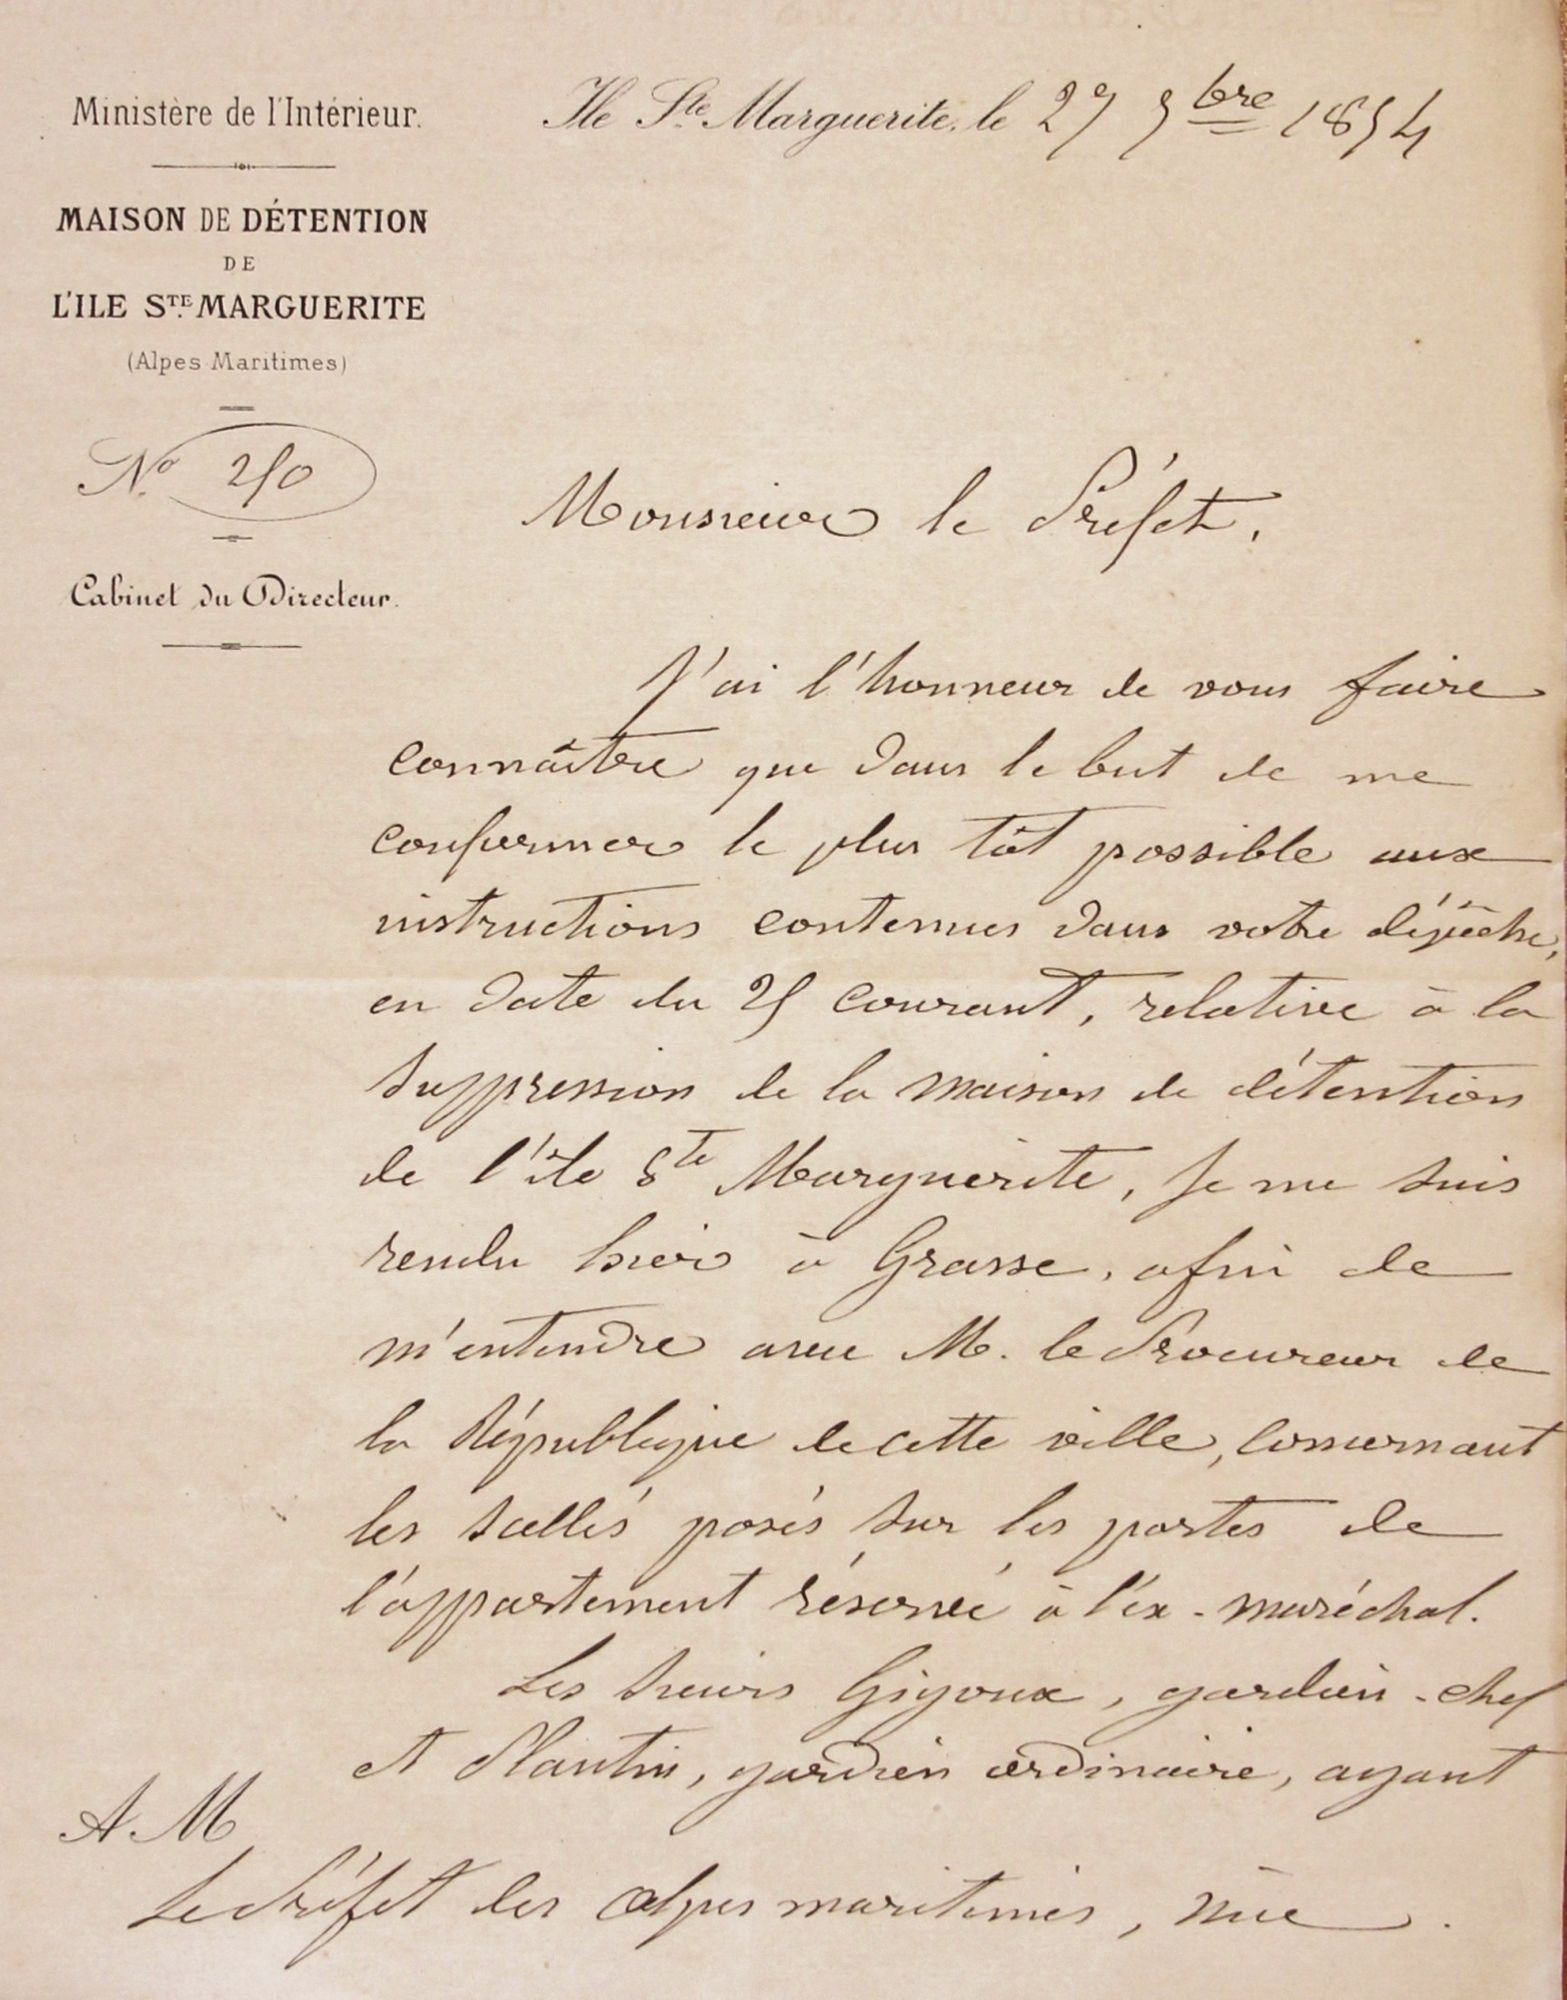 Ministère de l'Intérieur.
MAISON DE DÉTENTION
DE
L'ILE STE MARGUERITE
(Alpes Maritimes)
N° 250
Cabinet du Directeur.
Ile Ste Marguerite, le 1874
Monsieur le Préfet,
J'ai l'honneur de vous faire
connaître que dans le but de me
conformer le plus tôt possible aux
instructions contenues dans votre dépêche,
en date du 25 courant, relative à la
suppression de la maison de détention
de l'île Ste Marguerite, je me suis
rendu hier à Grasse, afin de
m'entendre avec M. le Procureur de
la République de cette ville, concernant
les scellés posés sur les portes de
l'appartement réservé à l'éx-maréchal.
Les sieurs Gigoux, gardien-chef
et Plantin, gardien ordinaire, ayant
A M
Le Préfet des Alpes maritimes, Nice.